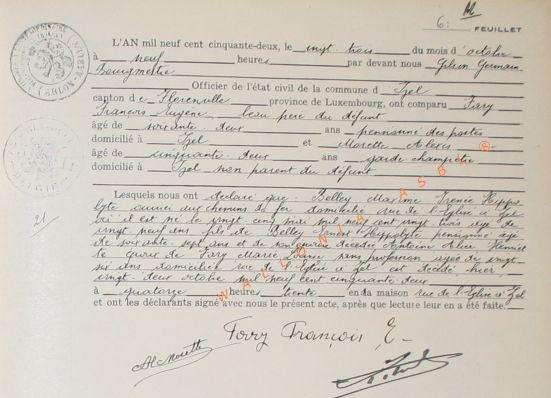 6:
FEUILLET
L'AN mil neuf cent cinquante-deux, le vingt-trois du mois d'octobre
à neuf heures par devant nous Gilson Germain
Bourgmestre
Officier de l'état civil de la commune d'Izel
canton de Florenville province de Luxembourg, ont comparu Fory
François Eugène, beau père du défunt
âgé de soixante-deux ans pensionné des postes
domicilié à Izel et Morette Alexis
âgé de cinquante-deux ans garde champêtre
domicilié à Izel non parent du défunt
Lesquels nous ont déclaré que: Belley Maxime Irenée Hippo
lyte ouvrier au chemins de fer domicilié rue de l'Eglise à Izel
où il est né le vingt cinq mai mil neuf cent vingt trois âgé de
vingt-neuf ans fils de Belley Hippolyte pensionné âgé
de soixante-sept ans et de son épouse décédée Antoine Alice
de Fory Marie sans profession âgée de vingt-
six ans domiciliée rue de l'Eglise à Izel est décédé hier
vingt-deux octobre mil neuf cent cinquante-deux
à quatorze heures trente en sa maison rue de l'Eglise à Izel
et ont les déclarants signé avec nous le présent acte, après que lecture leur en a été faite.
Fory François E
Al Morette
21
WALLONIA ASBL ®